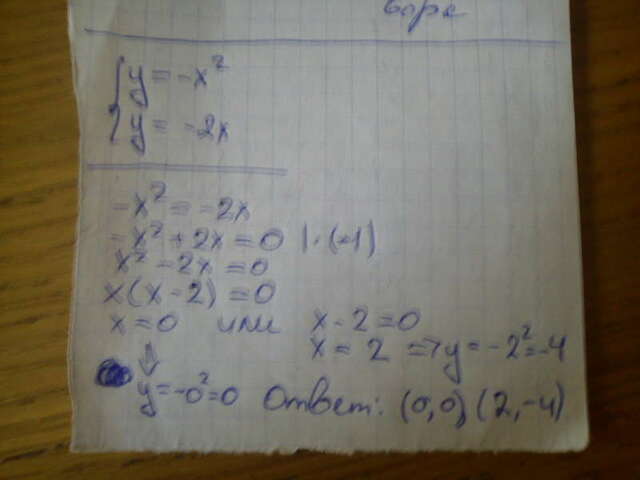 y = -x²
y = -2x
-x² = -2x
-x² + 2x = 0 | · (-1)
x² - 2x = 0
x(x - 2) = 0
x = 0 или x - 2 = 0
x = 2 => y = -2² = -4
y = -0² = 0 Ответ: (0,0) (2,-4)